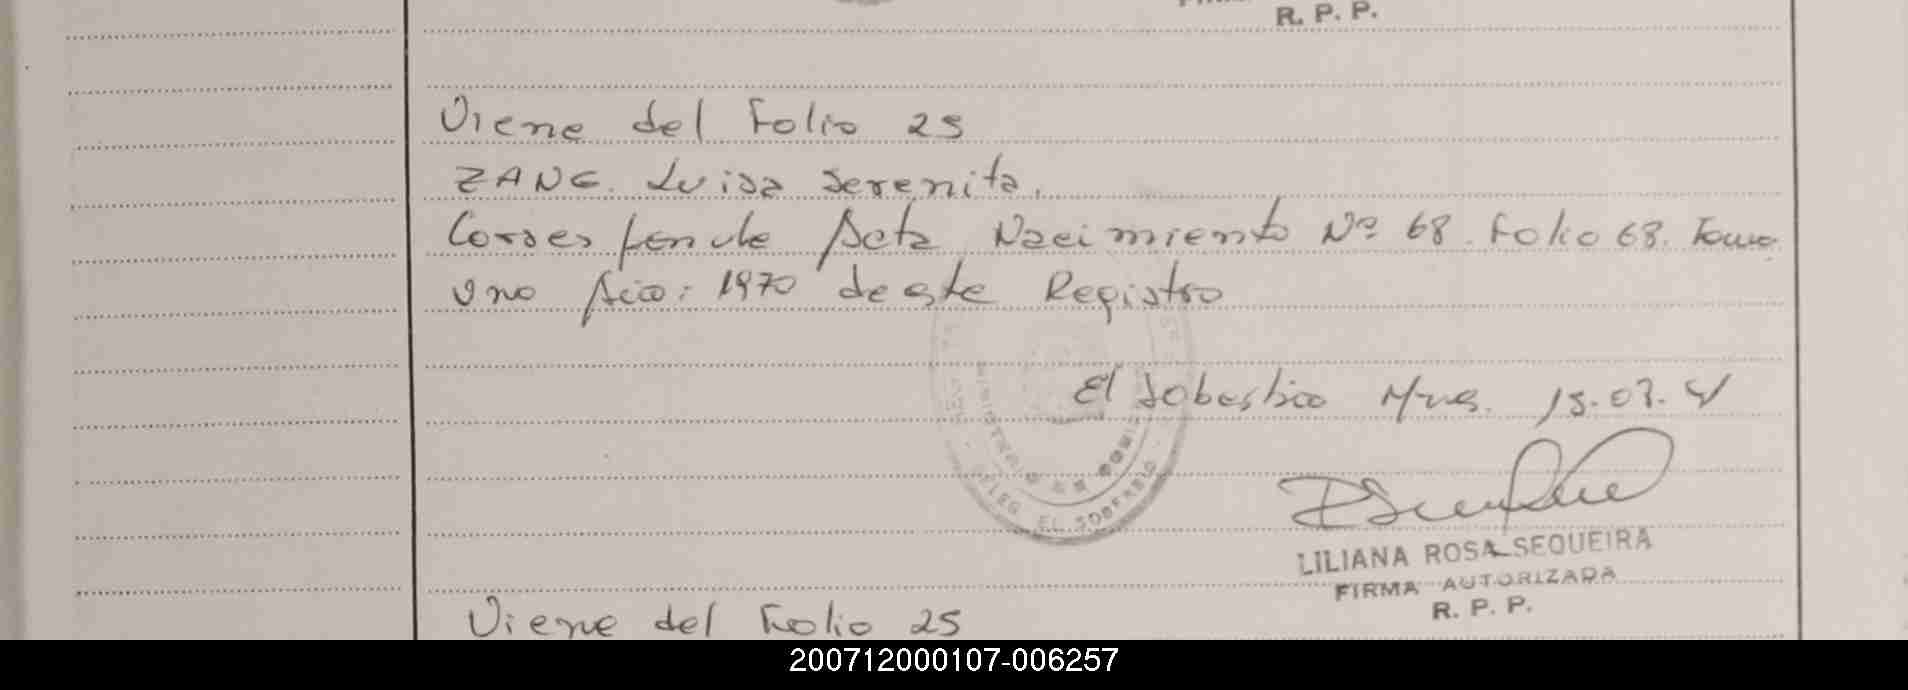 R. P. P.
Viene del Folio 25
ZANE. Luisa Serenita.
Corresponde Acta Nacimiento Nº 68. Folio 68. Tomo
Uno Año: 1970 de este Registro
El Soberbio Mnes. 15.03.
DELEG EL SOBERBIO
LILIANA ROSA SEQUEIRA
FIRMA AUTORIZADA
R. P. P.
Viene del Folio 25
200712000107-006257